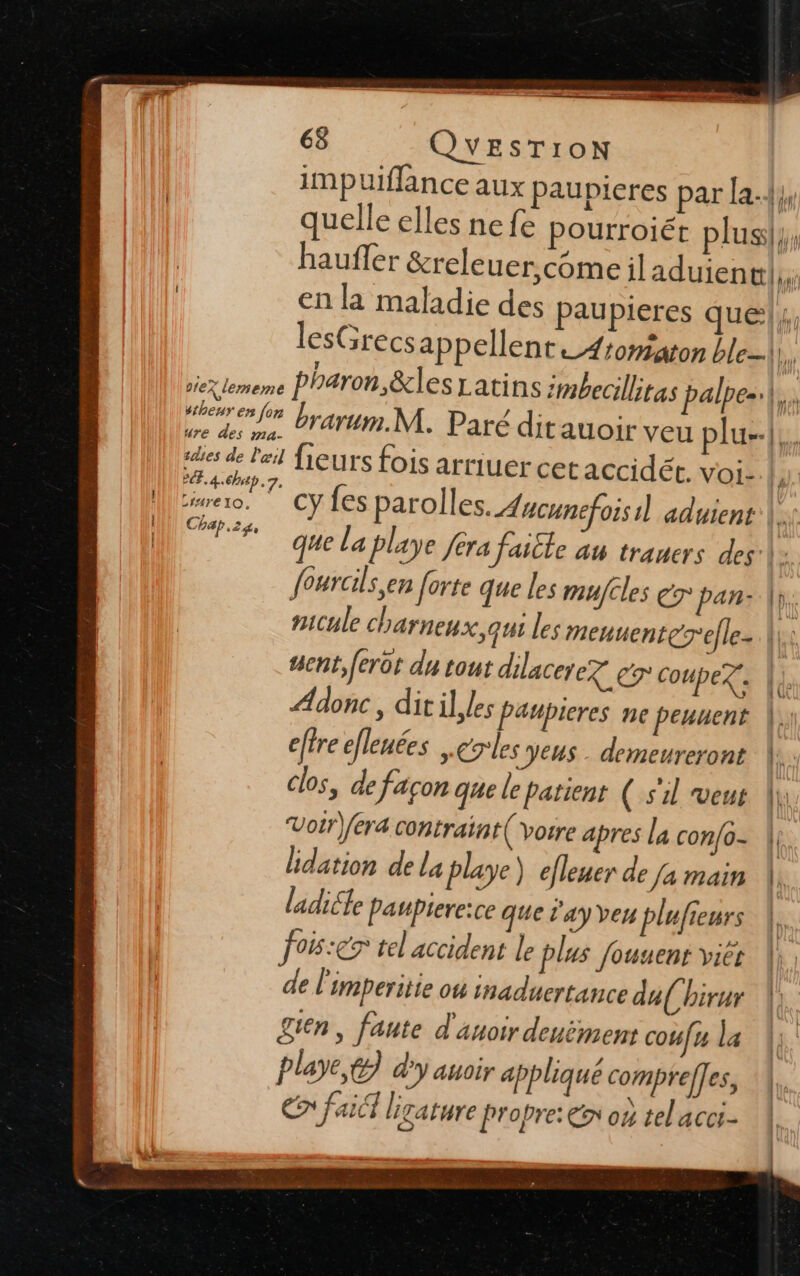 68 QVESTION
impuiſſance aux paupieres par la-
quelle elles ne ſe pourroiẽt plus
hauſſer &releuer,cõme il aduient
en la maladie des paupieres que
lesGrecsappellent Atoniaton ble-
pharon,&les Latins imbecillitas palpe-
brarum. M. Paré dit auoir veu plu-
ſieurs fois arriuer cet accidẽt. voi-
cy ſes parolles. Aucunefois il aduient
que la playe ſera faicte au trauers des
ſourcils,en ſorte que les muſcles & pan-
nicule charneux,qui les meuuent&eſle-
uent,ſerõt du tout dilacerez & coupez.
Adonc, dit il,les paupieres ne peuuent
eſtre eſleuées ,&les yeus demeureront
clos, de façon que le patient ( s'il veut
voir)ſera contraint( voire apres la conſo-
lidation de la playe) eſleuer de ſa main
ladicte paupiere:ce que i'ay veu pluſieurs
fois:& tel accident le plus ſouuent viẽt
de l'imperitie ou inaduertance du Chirur
gien, faute d'auoir deuëment couſu la
playe,& d'y auoir appliqué compreſſes,
& faict ligature propre:& où tel acci-
viez lememe
autheur en ſon
ure des ma-
adies de l'œil
ſect.4.chap.7.
Liure10.
Chap.24.